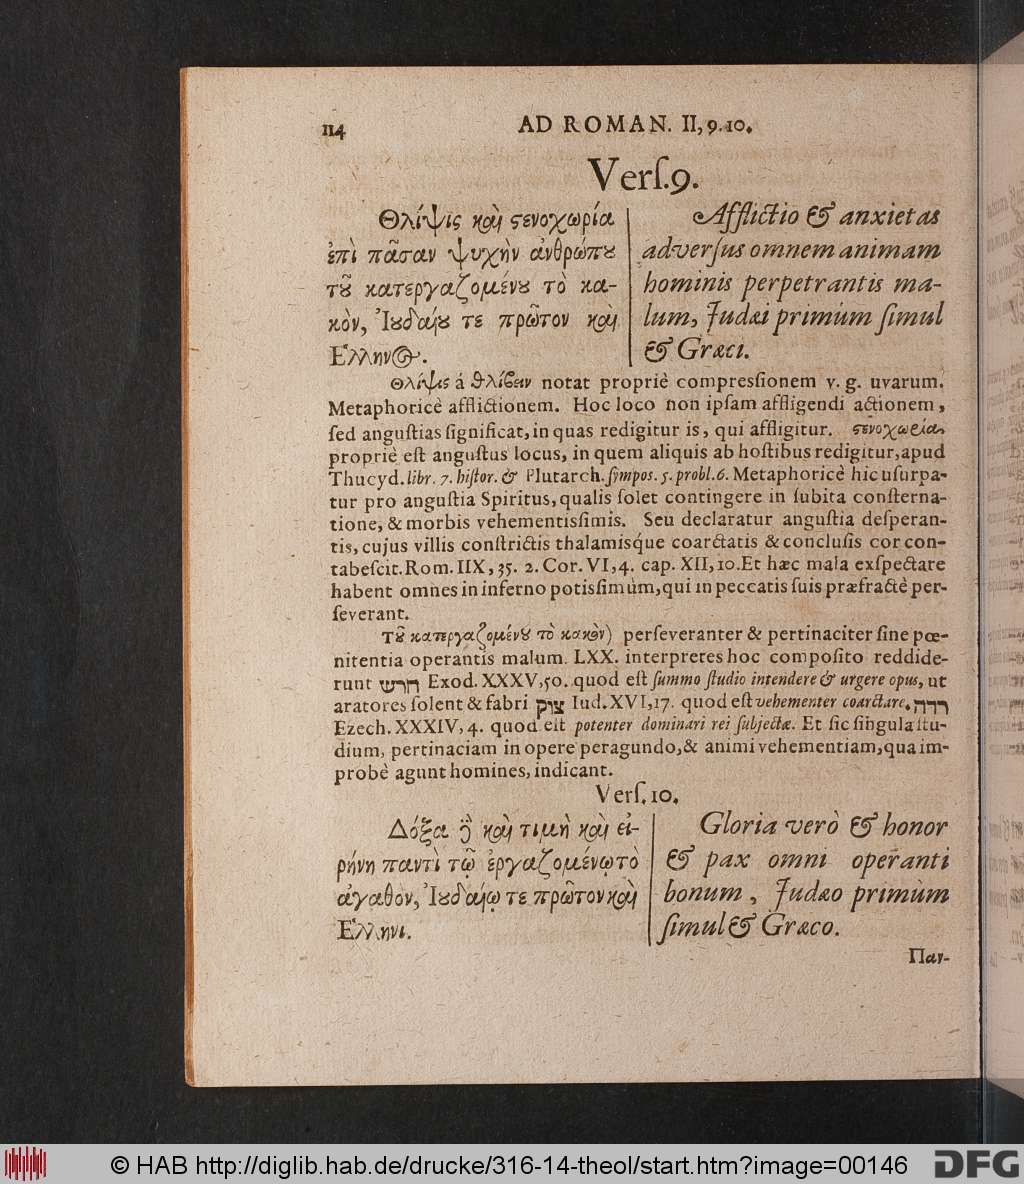 114
AD ROMAN. II, 9.10.
Verſ.9.
Θλίψις καὶ ϛενοχωρία
ἐπὶ πᾶσαν ψυχὴν ἀνθρώπȣ
τȣ͂ κατεργαζομένȣ τὸ κα-
κὸν, Ἰȣδαίȣ τε πρῶτον καὶ
Ἑλληνος.
Afflictio & anxietas
adverſus omnem animam
hominis perpetrantis ma-
lum, Judæi primùm ſimul
& Græci.
Θλίψις á θλίβειν notat propriè compreſſionem v. g. uvarum.
Metaphoricè afflictionem. Hoc loco non ipſam affligendi actionem,
ſed anguſtias ſignificat, in quas redigitur is, qui affligitur. ϛενοχωρία
propriè eſt anguſtus locus, in quem aliquis ab hoſtibus redigitur, apud
Thucyd. libr. 7. hiſtor. & Plutarch. ſympoſ. 5. probl. 6. Metaphoricè hic uſurpa-
tur pro anguſtia Spiritus, qualis ſolet contingere in ſubita conſterna-
tione, & morbis vehementiſſimis. Seu declaratur anguſtia deſperan-
tis, cujus villis conſtrictis thalamisq́ue coarctatis & concluſis cor con-
tabeſcit. Rom. IIX, 35. 2. Cor. VI, 4. cap. XII, 10. Et hæc mala exſpectare
habent omnes in inferno potiſſimùm, qui in peccatis ſuis præfractè per-
ſeverant.
Τȣ͂ κατεργαζομένȣ τὸ κακὸν) perſeveranter & pertinaciter ſine pœ-
nitentia operantis malum. LXX. interpretes hoc compoſito reddide-
runt חרש Exod. XXXV, 50. quod eſt ſummo ſtudio intendere & urgere opus, ut
aratores ſolent & fabri צוק Iud. XVI, 17. quod eſt vehementer coarctare. רדה
Ezech. XXXIV, 4. quod eſt potenter dominari rei ſubjectæ. Et ſic ſingula ſtu-
dium, pertinaciam in opere peragundo, & animi vehementiam, qua im-
probè agunt homines, indicant.
Verſ. 10.
Δόξα δὲ καὶ τιμὴ καὶ εἰ-
ρήνη παντὶ τῷ ἐργαζομένῳ τὸ
ἀγαθὸν, Ἰȣδαίῳ τε πρῶτον καὶ
Ἑλληνι.
Gloria verò & honor
& pax omni operanti
bonum, Judæo primùm
ſimul & Græco.
Παν-
© HAB http://diglib.hab.de/drucke/316-14-theol/start.htm?image=00146
DFG